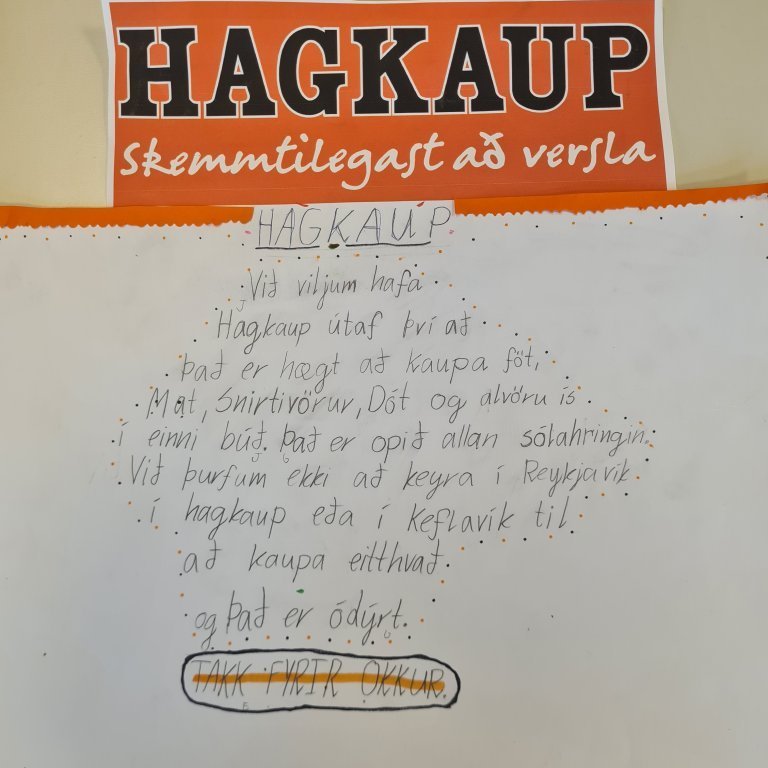 HAGKAUP
skemmtilegast að versla
HAGKAUP
Við viljum hafa
Hagkaup útaf því að
það er hægt að kaupa föt,
Mat, Snirtivörur, Dót og alvöru ís
í einni búð. Það er opið allan sólahringin.
Við þurfum ekki að keyra í Reykjavík
í hagkaup eða í Keflavík til
að kaupa eitthvað.
og það er ódýrt.
TAKK FYRIR OKKUR.